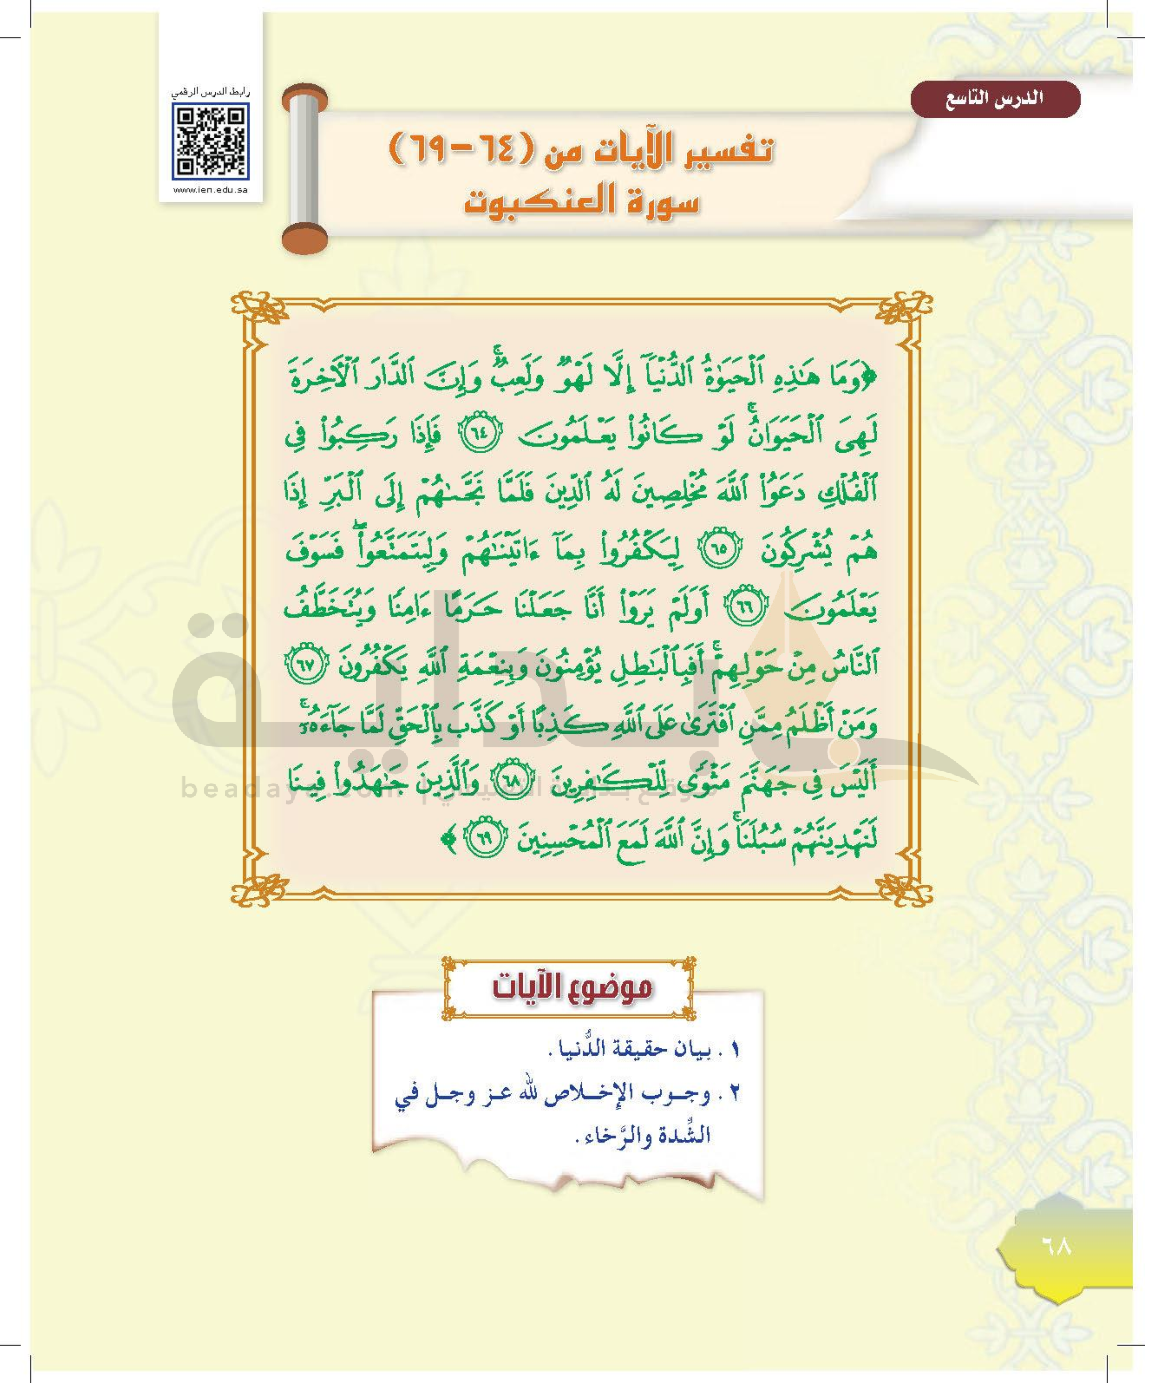 الدرس التاسع
رابط الدرس الرقمي
www.ien.edu.sa
تفسير الآيات من (٦٤-٦٩)
سورة العنكبوت
﴿وَمَا هَٰذِهِ ٱلْحَيَوٰةُ ٱلدُّنْيَآ إِلَّا لَهْوٌ وَلَعِبٌ ۚ وَإِنَّ ٱلدَّارَ ٱلْأَخِرَةَ
لَهِىَ ٱلْحَيَوَانُ ۚ لَوْ كَانُوا۟ يَعْلَمُونَ ٦٤ فَإِذَا رَكِبُوا۟ فِى
ٱلْفُلْكِ دَعَوُا۟ ٱللَّهَ مُخْلِصِينَ لَهُ ٱلدِّينَ فَلَمَّا نَجَّىٰهُمْ إِلَى ٱلْبَرِّ إِذَا
هُمْ يُشْرِكُونَ ٦٥ لِيَكْفُرُوا۟ بِمَآ ءَاتَيْنَٰهُمْ وَلِيَتَمَتَّعُوا۟ ۖ فَسَوْفَ
يَعْلَمُونَ ٦٦ أَوَلَمْ يَرَوْا۟ أَنَّا جَعَلْنَا حَرَمًا ءَامِنًا وَيُتَخَطَّفُ
ٱلنَّاسُ مِنْ حَوْلِهِمْ ۚ أَفَبِٱلْبَٰطِلِ يُؤْمِنُونَ وَبِنِعْمَةِ ٱللَّهِ يَكْفُرُونَ ٦٧
وَمَنْ أَظْلَمُ مِمَّنِ ٱفْتَرَىٰ عَلَى ٱللَّهِ كَذِبًا أَوْ كَذَّبَ بِٱلْحَقِّ لَمَّا جَآءَهُۥٓ ۚ
أَلَيْسَ فِى جَهَنَّمَ مَثْوًى لِّلْكَٰفِرِينَ ٦٨ وَٱلَّذِينَ جَٰهَدُوا۟ فِينَا
لَنَهْدِيَنَّهُمْ سُبُلَنَا ۚ وَإِنَّ ٱللَّهَ لَمَعَ ٱلْمُحْسِنِينَ ٦٩ ﴾
بداية
موضوع الآيات
١ . بيان حقيقة الدُّنيا.
٢ . وجوب الإخلاص لله عز وجل في
الشِّدة والرَّخاء.
٦٨